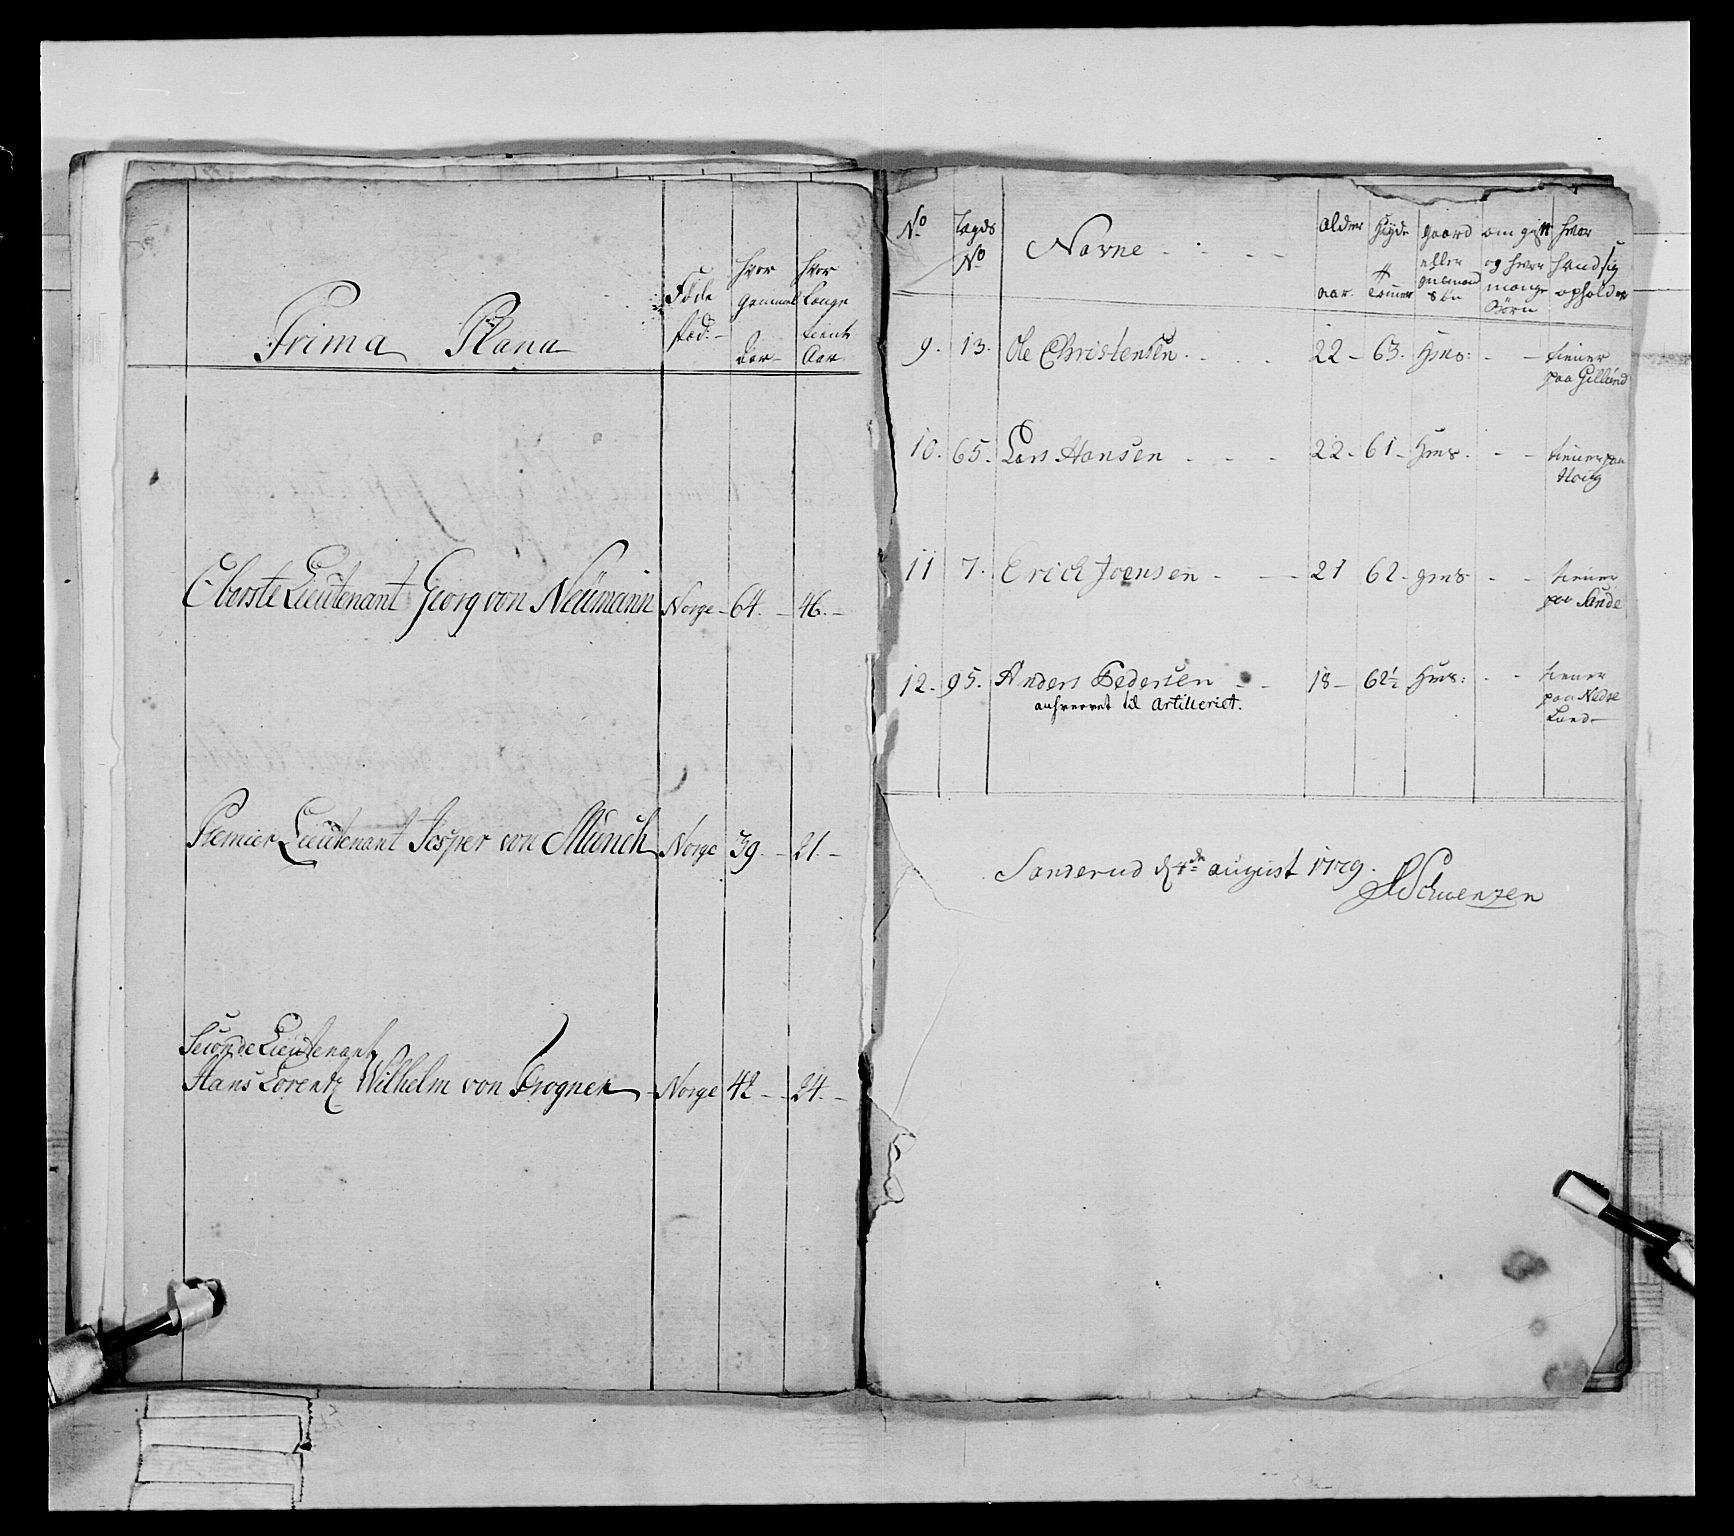 Prima Plana
Føde
stæd.
hvor
gammel
Aar
hvor
Længe
tient
Aar
Oberste Lieutenant Georg von Neümann Norge 64. 46.
Premier Lieutenant Jesper von Münch Norge 39. 21.
Seconde Lieutenant
Hans Lorentz Wilhelm von Frogner Norge 42 24.
No
Lægds
No
Navne
alder
aar.
Høyde
Tommer
gaard
eller
huusmand
søn
om gift
og hvor
mange
Børn
hvor
hand sig
opholder
9. 13. Ole Christensen 22 63. Hms: tiener
paa Gillund
10. 65. Lars Hansen 22 61 Hms. tiener paa
11 7. Erich Joensen 21 62 gms tiener
paa Sande
12. 95. Anders Pedersen 18 62½ Hms: tiener
anhvervet til Artilleriet.
paa Nedre
Lund
Sanderud d 4de august 1779.
Schwenzen